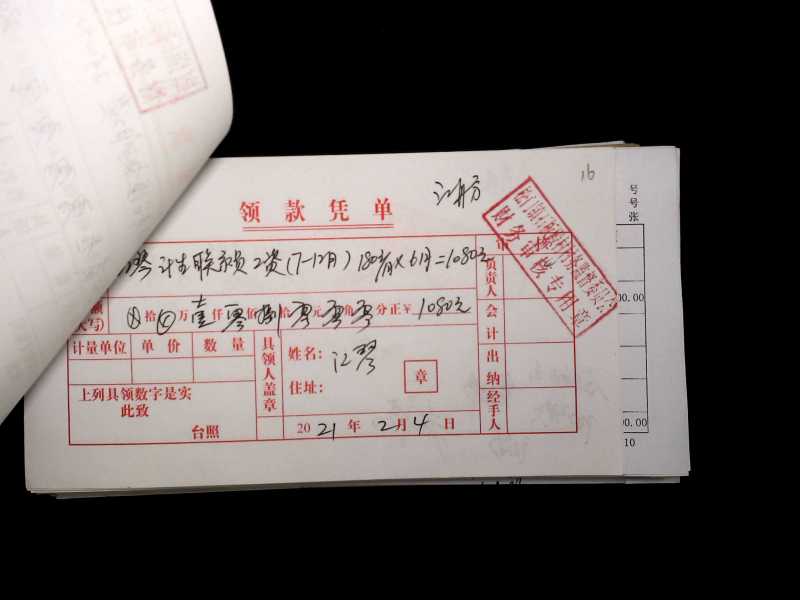 16
江舟方
领款凭单
审核
琴 计生联系员工资(7-12月)180元/月×6月=1080元
负责人
大写) ⊗拾⊗万壹仟零佰捌拾零元零角零分正¥1080元
会计
计量单位 单价 数量
具领人盖章
姓名:江琴
住址:
章
出纳
上列具领数字是实
此致
台照
经手人
2021年2月4日
财务审核专用章
号
号
张
00.00
00.00
10